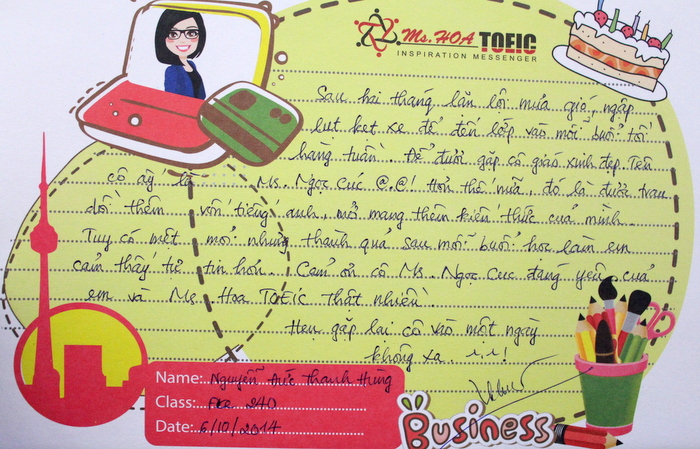 Ms. HOA TOEIC
INSPIRATION MESSENGER
Sau hai tháng lăn lội mưa gió, ngập
lụt kẹt xe để đến lớp vào mỗi buổi tối
hàng tuần. Để được gặp cô giáo xinh đẹp. Tên
cô ấy là Ms. Ngọc Cúc @.@! Hơn thế nữa, đó là được trau
dồi thêm vốn tiếng anh, mở mang thêm kiến thức của mình.
Tuy có mệt mỏi nhưng thành quả sau mỗi buổi học làm em
cảm thấy tự tin hơn. Cảm ơn cô Ms. Ngọc Cúc đáng yêu của
em và Ms Hoa TOEIC thật nhiều
Hẹn gặp lại cô vào một ngày
không xa. !
Name: Nguyễn Đức Thanh Hùng
Class: 240
Date: 6/10/2014
Business